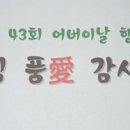 43회 어버이날
품愛 감사